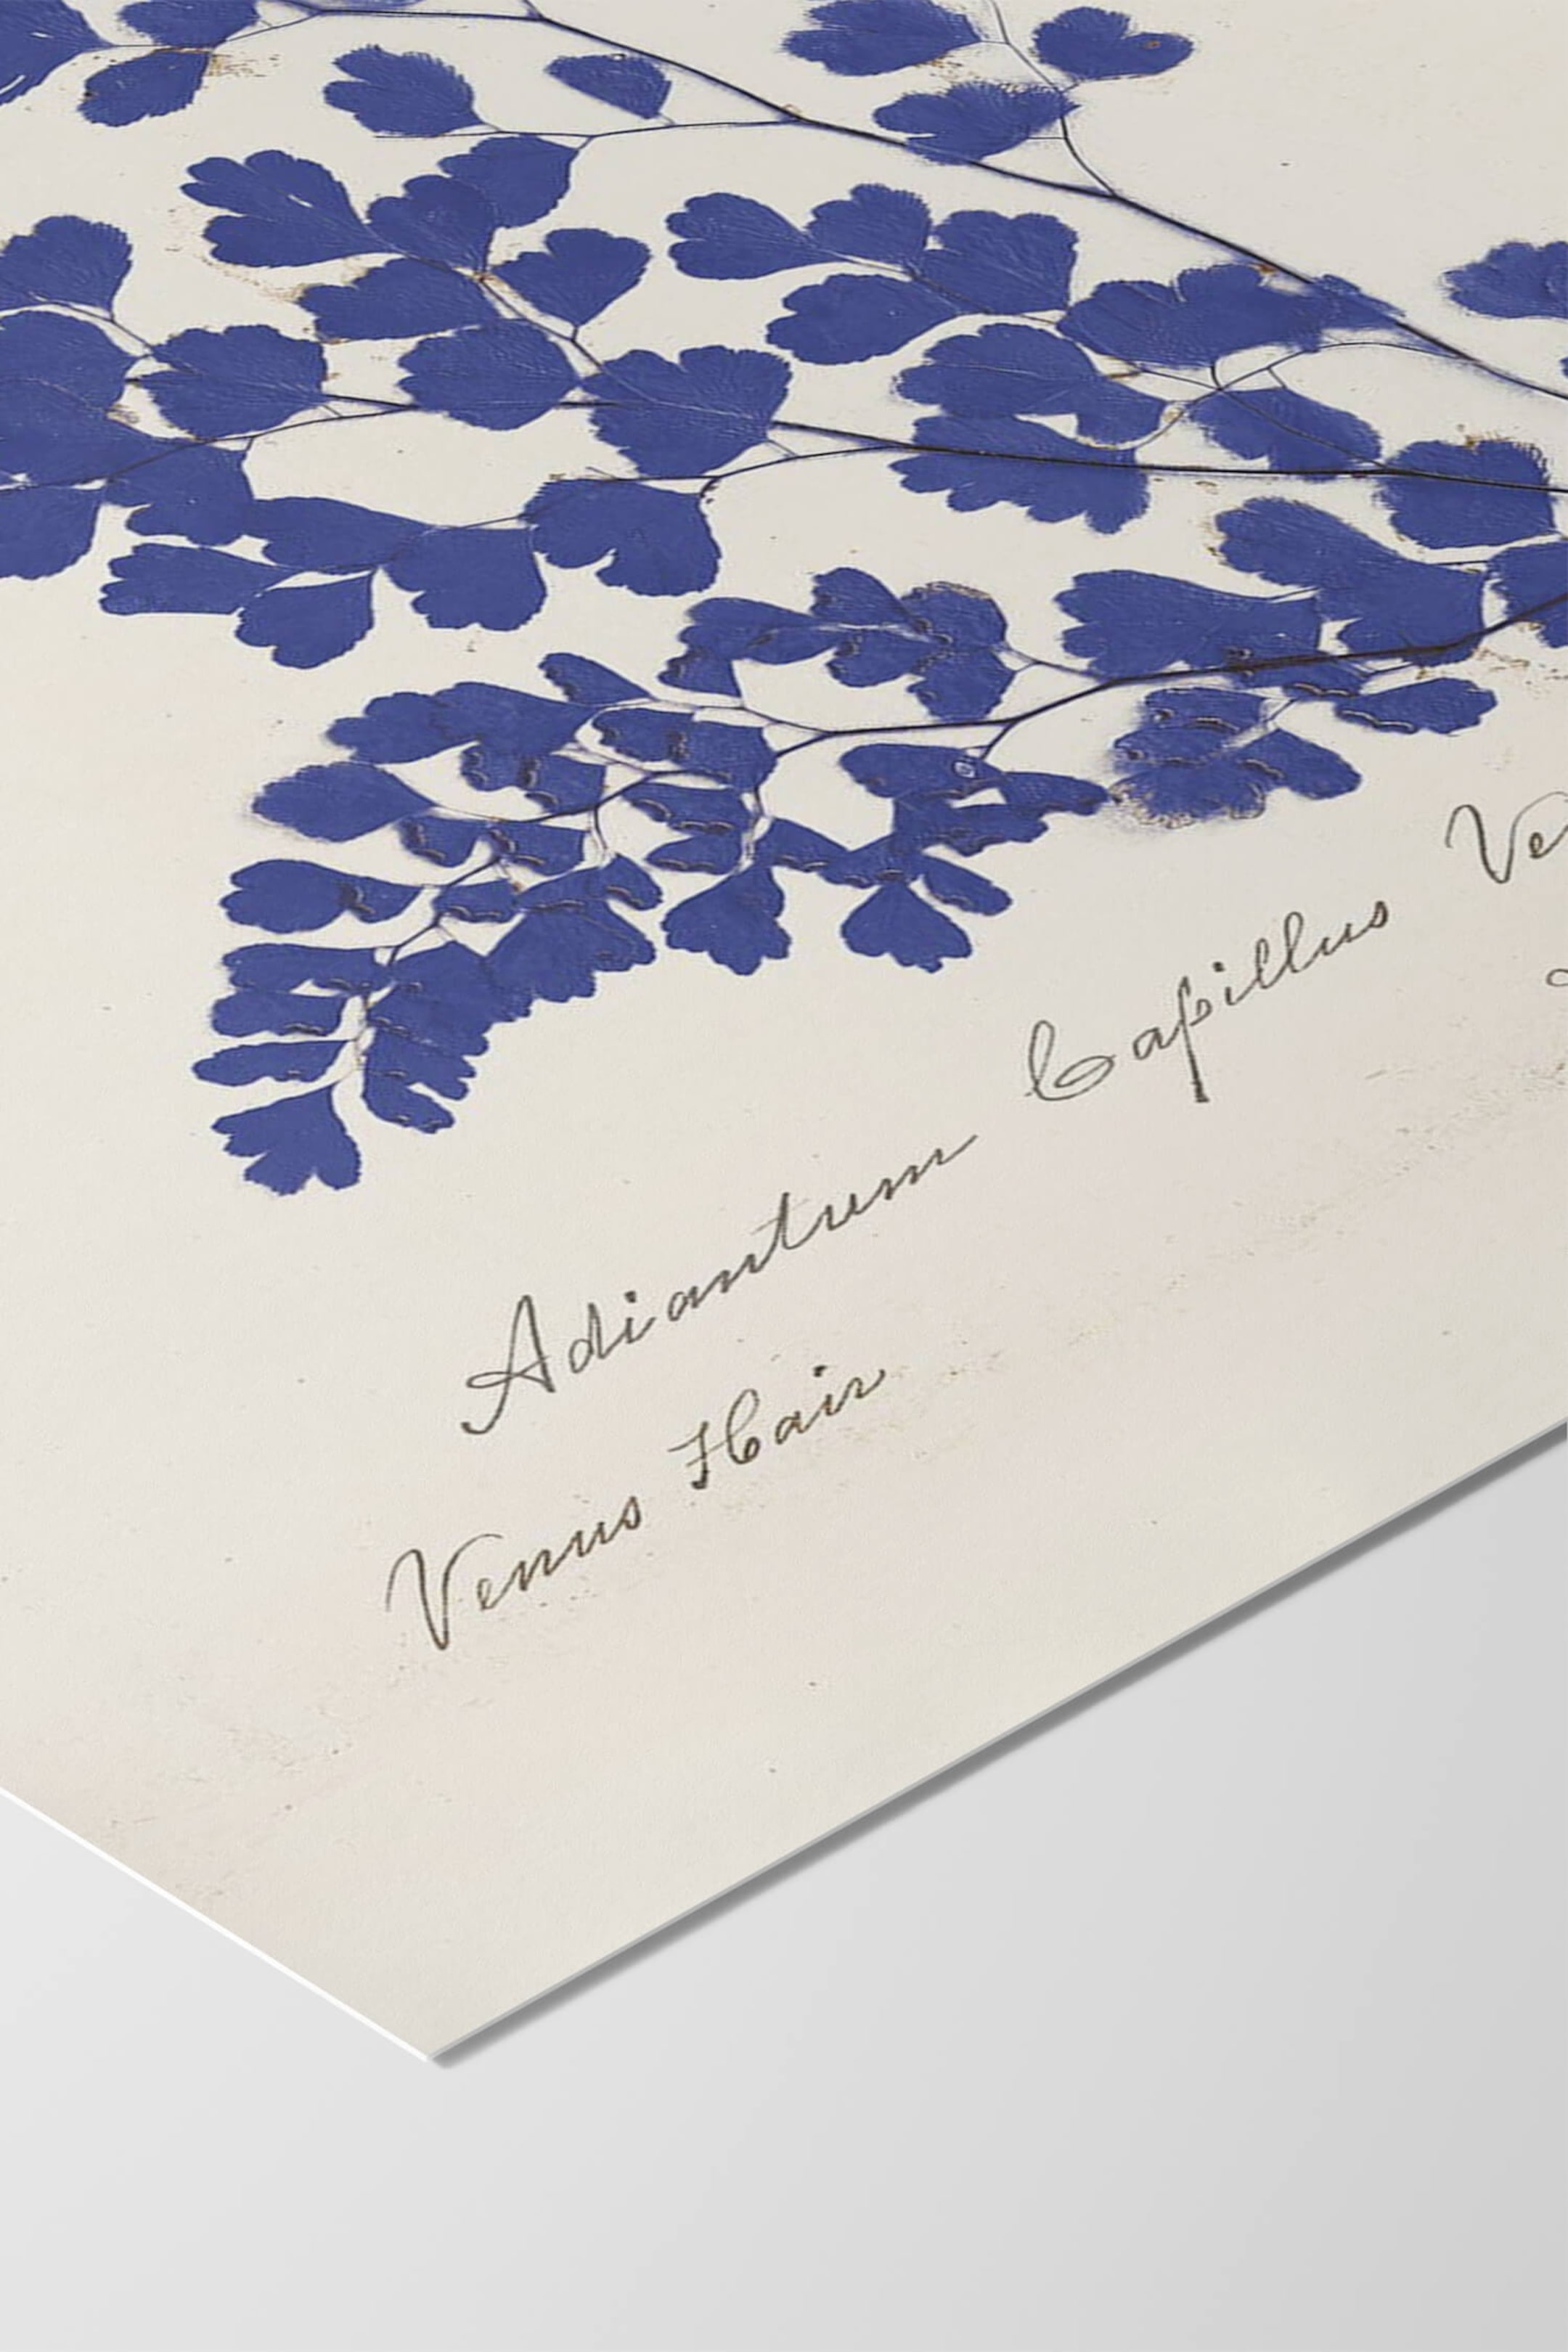 Adiantum Capillus Ve
Venus Hair